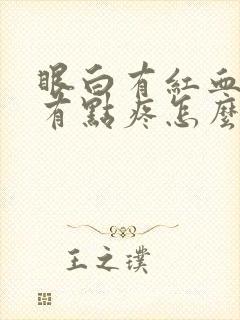 眼白有紅血
有點疼怎麼
王之璞